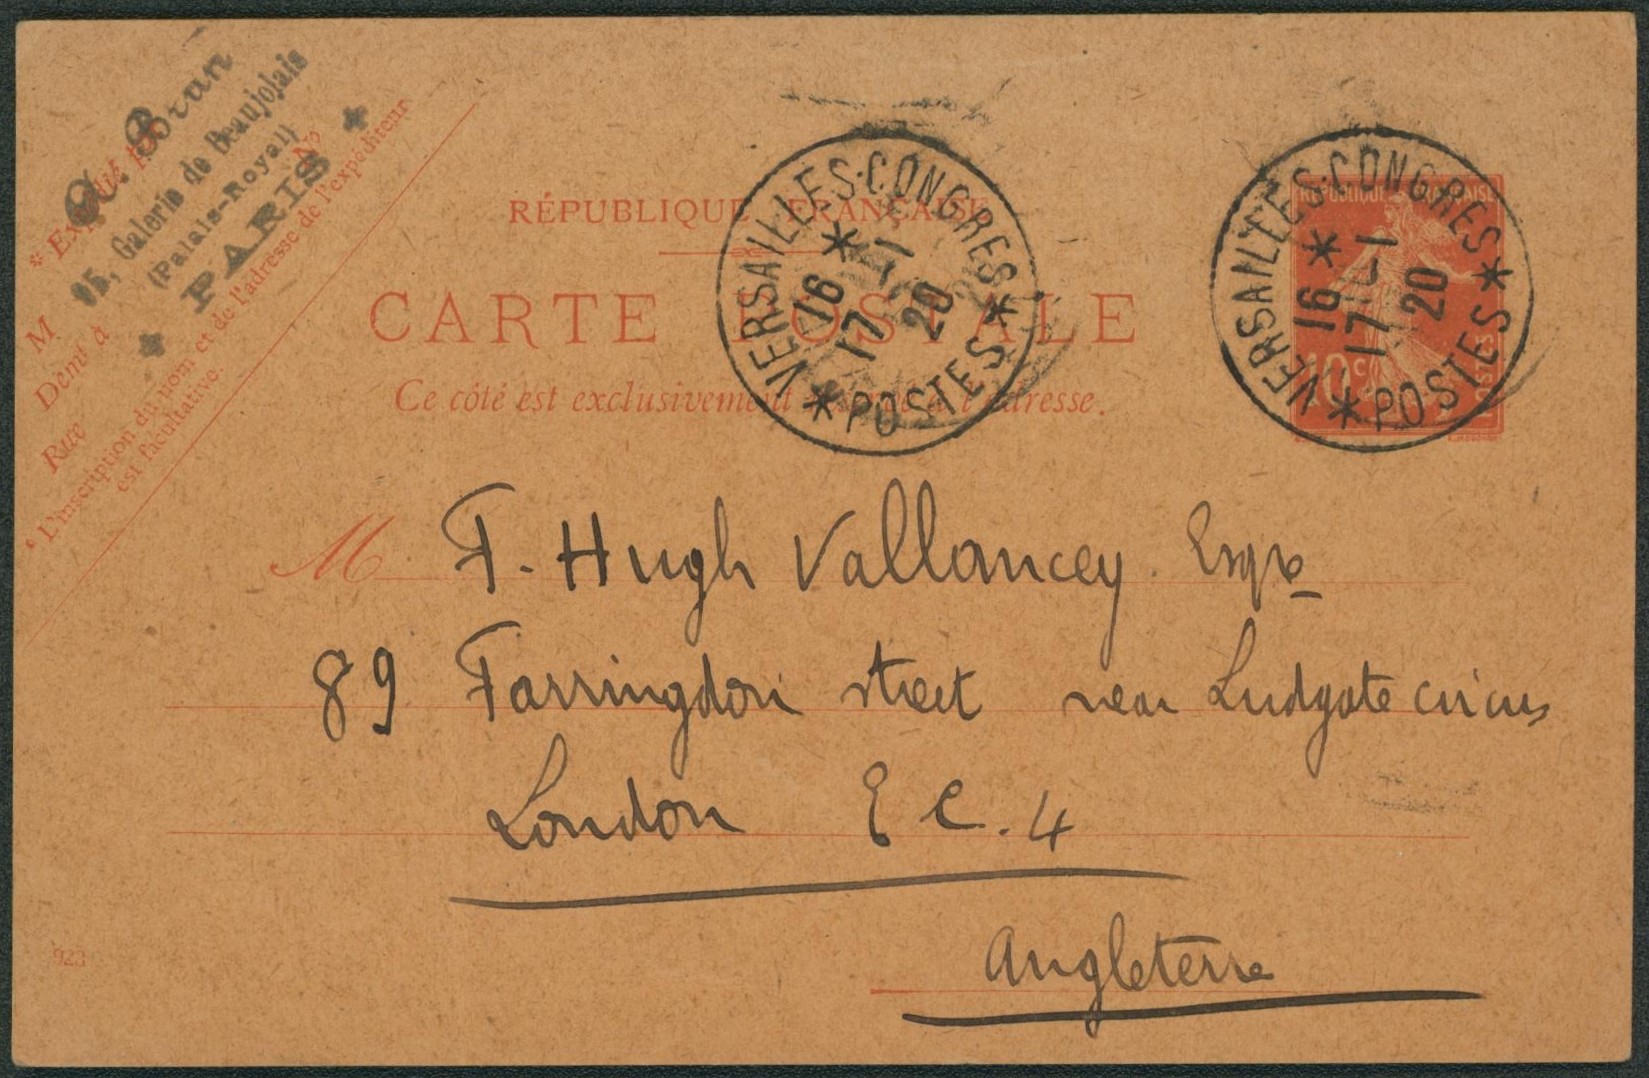 G. Brun
95, Galerie de Beaujolais
(Palais-Royal)
PARIS
* Expédié par
M
Demt à
Rue
N°
* L'inscription du nom et de l'adresse de l'expéditeur
est facultative.
RÉPUBLIQUE FRANÇAISE
CARTE POSTALE
Ce côté est exclusivement à l'adresse.
VERSAILLES-CONGRES
16 *
17-1
20
* POSTES *
VERSAILLES-CONGRES
16 *
17-1
20
* POSTES *
REPUBLIQUE FRANÇAISE
10c
POSTES
M F. Hugh Vallancey Esqre
89 Farringdon street near Ludgate circus
London E C. 4
Angleterre
923